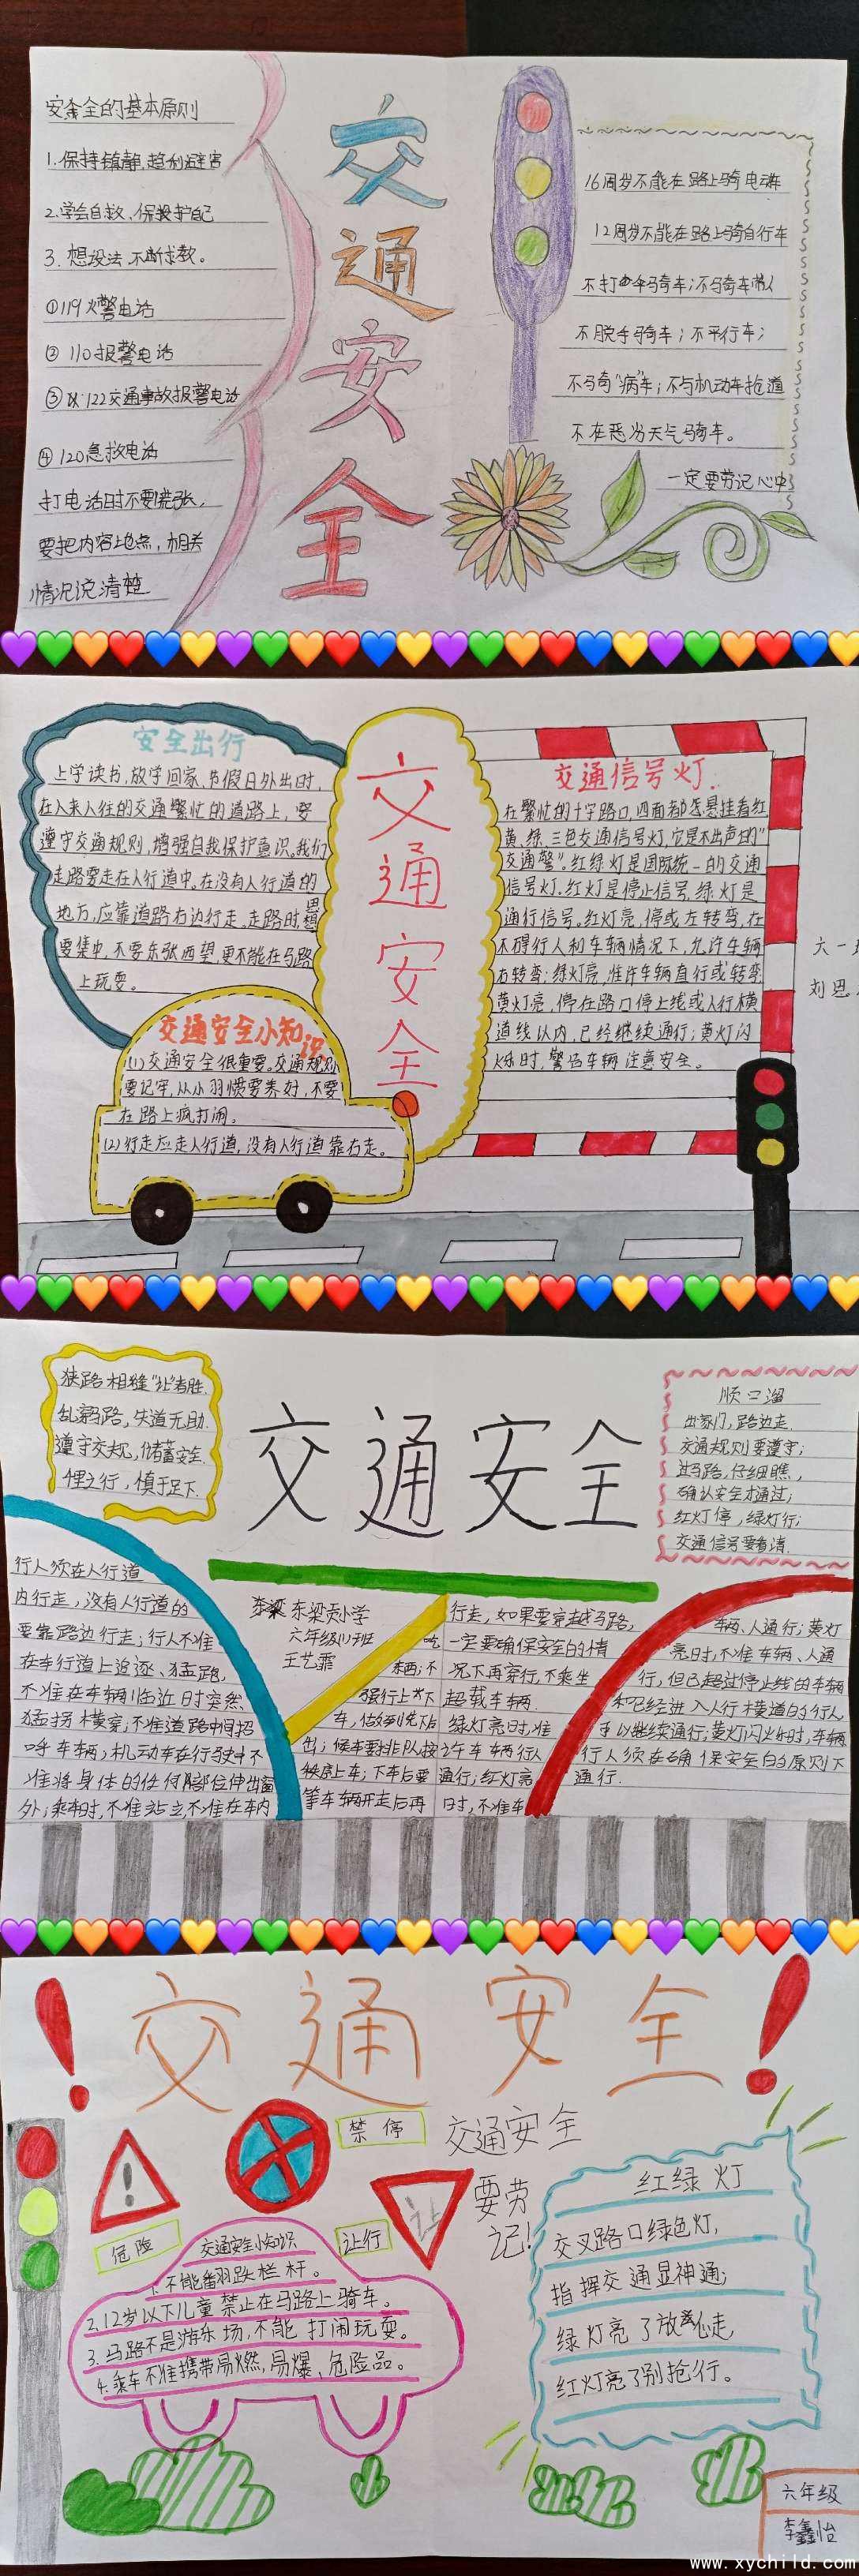 安全的基本原则
1.保持镇静,趋利避害
2.学会自救、保护自己
3.想设法、不断求救。
①119火警电话
②110报警电话
③122交通事故报警电话
④120急救电话
打电话时不要慌张,
要把内容地点,相关
情况说清楚
交通安全
16周岁不能在路上骑电动车
12周岁不能在路上骑自行车
不打伞骑车;不骑车带人
不脱手骑车;不平行车;
不骑“病”车;不与机动车抢道
不在恶劣天气骑车。
一定要劳记心中
安全出行
上学读书,放学回家,节假日外出时,
在人来人往的交通繁忙的道路上,要
遵守交通规则,增强自我保护意识。我们
走路要走在人行道中。在没有人行道的
地方,应靠道路右边行走。走路时,思想
要集中,不要东张西望,更不能在马路
上玩耍。
交通安全小知识
(1)交通安全很重要。交通规则
要记牢,从小习惯要养好,不要
在路上疯打闹。
(2)行走应走人行道,没有人行道靠右走。
交通安全
交通信号灯.
在繁忙的十字路口,四面都悬挂着红
黄、绿、三色交通信号灯,它是不出声的“
交通警”。红绿灯是国际统一的交通
信号灯。红灯是停止信号,绿灯是
通行信号。红灯亮,停或左转弯,在
不碍行人和车辆情况下,允许车辆
右转弯;绿灯亮,准许车辆直行或转弯
黄灯亮,停在路口停止线或人行横
道线以内,已经继续通行;黄灯闪
烁时,警告车辆注意安全。
六一
刘思
狭路相缝“让”者胜.
乱穿马路,失道无助.
遵守交规,储蓄安全.
千里之行,慎于足下.
交通安全
顺口溜
出家门,路边走.
交通规则要遵守;
过马路,仔细瞧,
确认安全才通过;
红灯停,绿灯行;
交通信号要看清.
行人须在人行道
内行走,没有人行道的
要靠路边行走;行人不准
在车行道上追逐、猛跑,
不准在车辆临近时突然
猛拐横穿;不准道路中间招
呼车辆;机动车在行驶中不
准将身体的任何部位伸出窗
外;乘车时,不准站立,不准在车内
东梁东梁贡小学
六年级(1)班
王艺霏
吃
东西;不
强行上下
车,做到先下后
出;候车要排队按
秩序上车;下车后要
等车辆开走后再
行走,如果要穿越马路,
一定要确保安全的情
况下再穿行,不乘坐
超载车辆.
绿灯亮时,准
许车辆行人
通行;红灯亮
时,不准车
辆、人通行;黄灯
亮时,不准车辆、人通
行,但已超过停止线的车辆
和已经进入人行横道的行人
可以继续通行;黄灯闪烁时,车辆
行人须在确保安全的原则下
通行.
交通安全
禁停
危险
让
让行
交通安全
要劳
记!
交通安全小知识
1.不能翻路栏杆。
2.12岁以下儿童禁止在马路上骑车。
3.马路不是游乐场,不能打闹玩耍。
4.乘车不准携带易燃,易爆、危险品。
红绿灯
交叉路口绿色灯,
指挥交通显神通;
绿灯亮了放心走,
红灯亮了别抢行。
六年级
李鑫怡
www.xychild.com